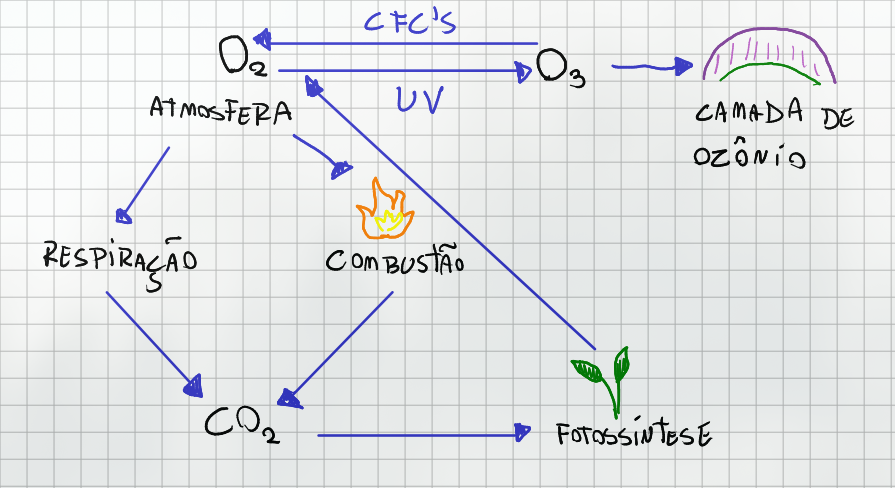 CFC'S
O2
O3
UV
ATMOSFERA
CAMADA DE
OZÔNIO
RESPIRAÇÃO
COMBUSTÃO
CO2
FOTOSSÍNTESE